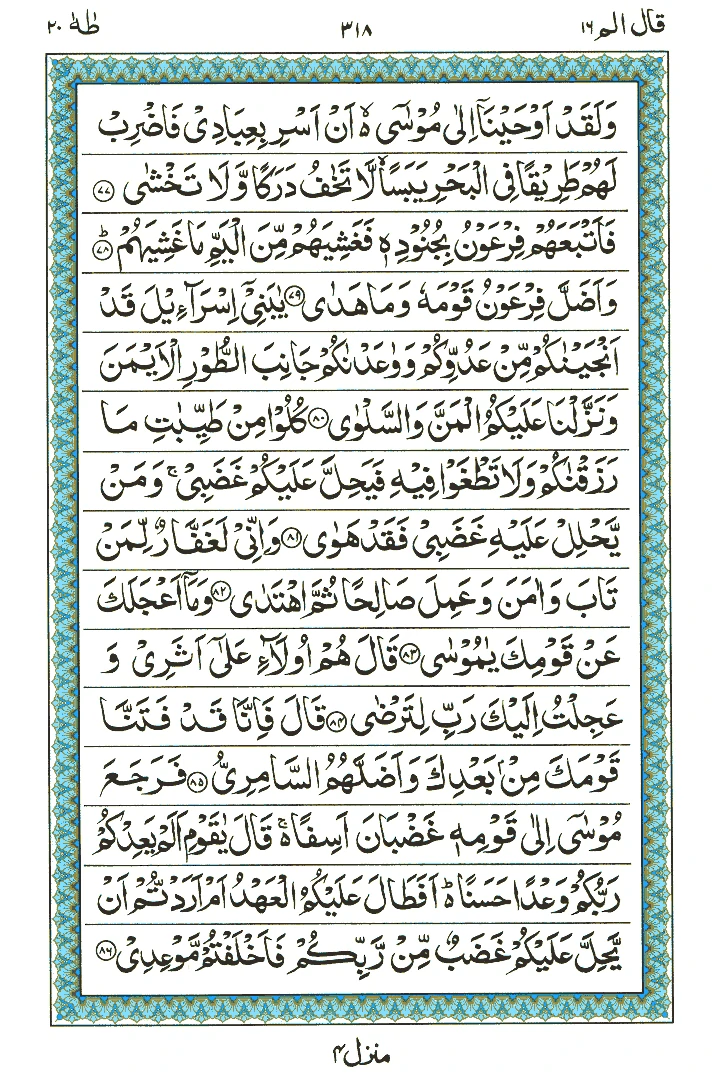 قال الم ١٦ ٣١٨ طٰهٰ ٢٠
وَلَقَدْ اَوْحَيْنَاۤ اِلٰى مُوْسٰۤى ۙ اَنْ اَسْرِ بِعِبَادِيْ فَاضْرِبْ
لَهُمْ طَرِيْقًا فِى الْبَحْرِ يَبَسًا ۙ لَّا تَخٰفُ دَرَكًا وَّ لَا تَخْشٰى ﴿۷۷﴾
فَاَتْبَعَهُمْ فِرْعَوْنُ بِجُنُوْدِهٖ فَغَشِيَهُمْ مِّنَ الْيَمِّ مَا غَشِيَهُمْ ﴿۷۸﴾ؕ
وَاَضَلَّ فِرْعَوْنُ قَوْمَهٗ وَمَا هَدٰى ﴿۷۹﴾ يٰبَنِيْۤ اِسْرَآءِيْلَ قَدْ
اَنْجَيْنٰكُمْ مِّنْ عَدُوِّكُمْ وَوٰعَدْنٰكُمْ جَانِبَ الطُّوْرِ الْاَيْمَنَ
وَنَزَّلْنَا عَلَيْكُمُ الْمَنَّ وَالسَّلْوٰى ﴿۸۰﴾ كُلُوْا مِنْ طَيِّبٰتِ مَا
رَزَقْنٰكُمْ وَلَا تَطْغَوْا فِيْهِ فَيَحِلَّ عَلَيْكُمْ غَضَبِيْ ۚ وَمَنْ
يَّحْلِلْ عَلَيْهِ غَضَبِيْ فَقَدْ هَوٰى ﴿۸۱﴾ وَاِنِّيْ لَغَفَّارٌ لِّمَنْ
تَابَ وَاٰمَنَ وَعَمِلَ صَالِحًا ثُمَّ اهْتَدٰى ﴿۸۲﴾ وَمَاۤ اَعْجَلَكَ
عَنْ قَوْمِكَ يٰمُوْسٰى ﴿۸۳﴾ قَالَ هُمْ اُولَآءِ عَلٰۤى اَثَرِيْ وَ
عَجِلْتُ اِلَيْكَ رَبِّ لِتَرْضٰى ﴿۸۴﴾ قَالَ فَاِنَّا قَدْ فَتَنَّا
قَوْمَكَ مِنْۢ بَعْدِكَ وَاَضَلَّهُمُ السَّامِرِيُّ ﴿۸۵﴾ فَرَجَعَ
مُوْسٰۤى اِلٰى قَوْمِهٖ غَضْبَانَ اَسِفًا ۚ۬ قَالَ يٰقَوْمِ اَلَمْ يَعِدْكُمْ
رَبُّكُمْ وَعْدًا حَسَنًا ؕ۬ اَفَطَالَ عَلَيْكُمُ الْعَهْدُ اَمْ اَرَدْتُّمْ اَنْ
يَّحِلَّ عَلَيْكُمْ غَضَبٌ مِّنْ رَّبِّكُمْ فَاَخْلَفْتُمْ مَّوْعِدِيْ ﴿۸۶﴾
منزل ۴